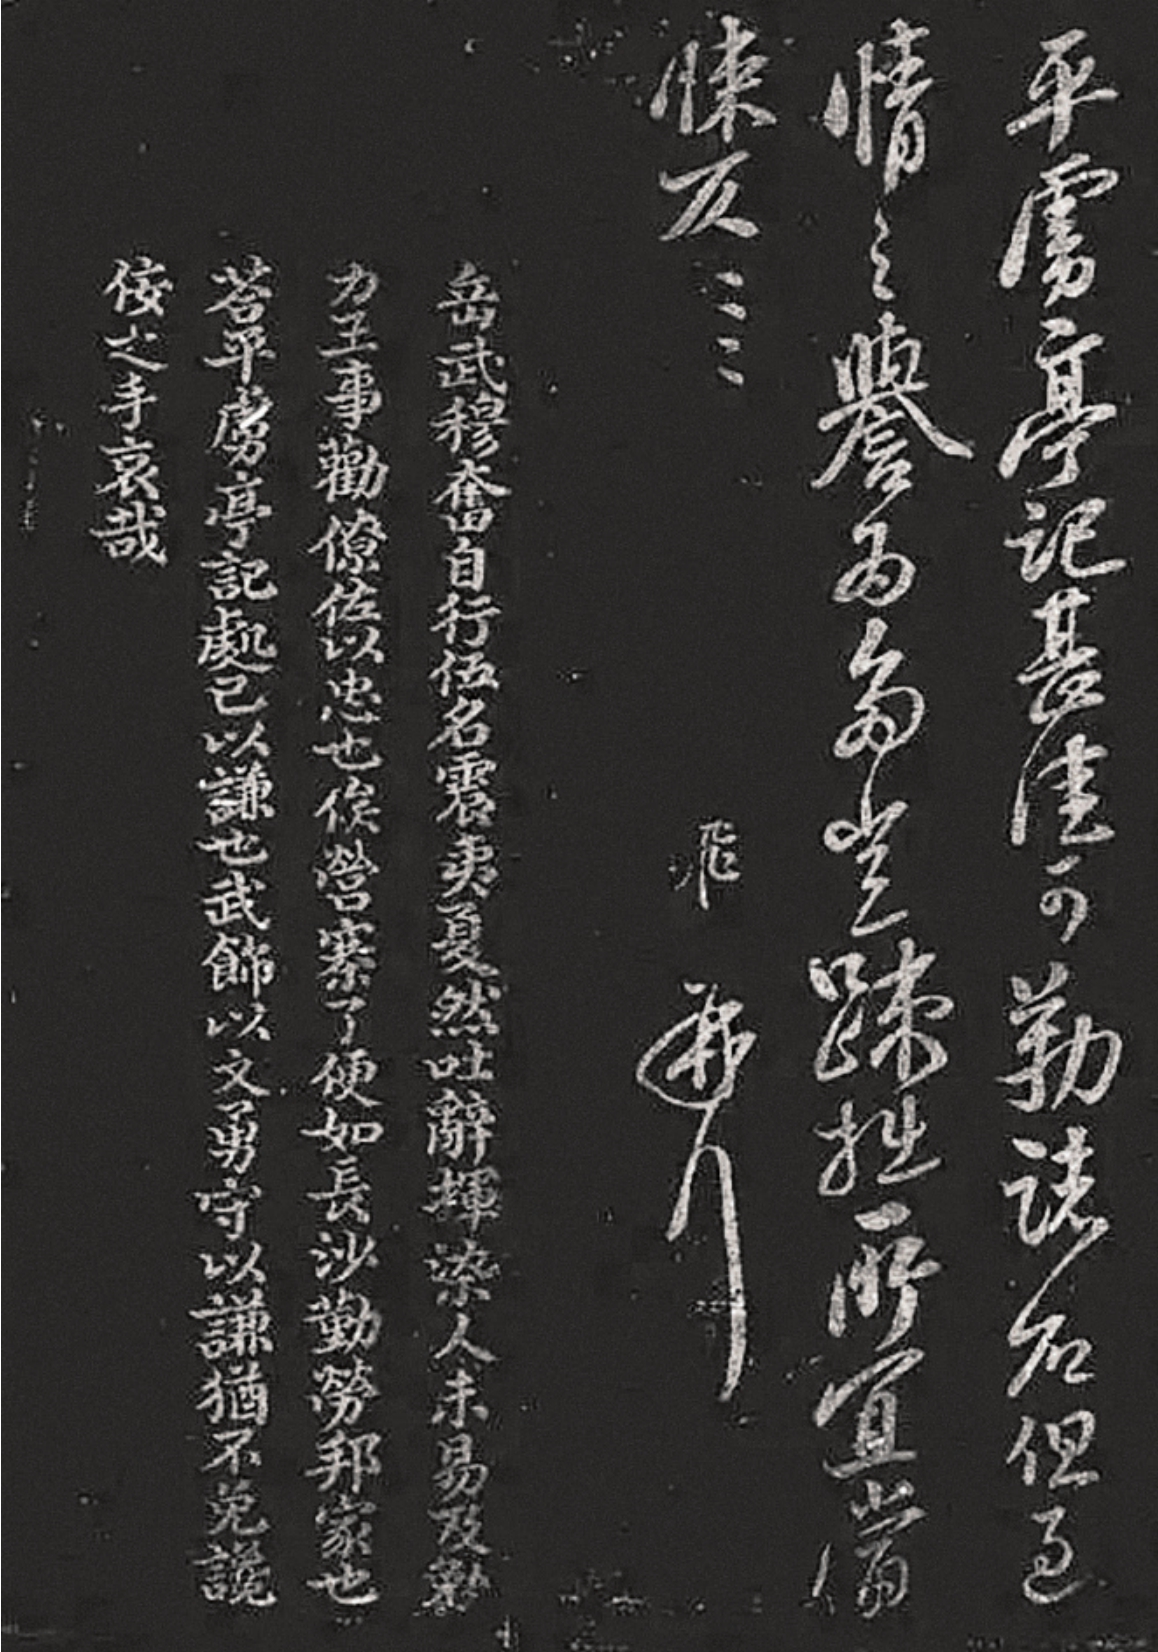 平虜亭記甚佳可勒諸石但過
情之譽為多豈踈拙所宜當
悚仄〻〻
飛 再拜
岳武穆奮自行伍名震夷夏然吐辭揮染人未易及勠
力王事勸僚佐以忠也俟營寨了便如長沙勤勞邦家也
若平虜亭記處己以謙也武飾以文勇守以謙猶不免讒
佞之手哀哉